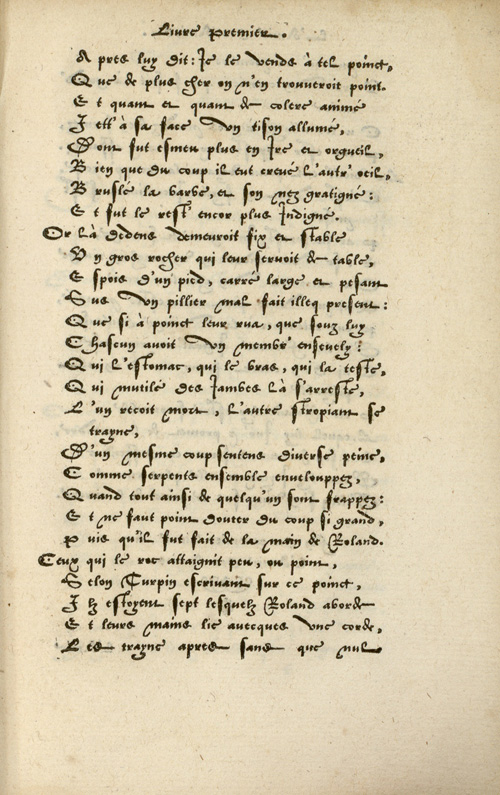 Livre premier.
A pres luy dit: Je le vends à tel poinct,
Q ue de plus cher on n'en trouveroit point.
E t quant et quant de colere animé
J ett' à sa face un tison allumé,
D ont fut esmeu plus en Ire et orgueil,
B ien que du coup il eut crevé l'autr' oeil,
B rusle la barbe, et son nez gratigné:
E t fut le rest' encor plus Indigné.
Or là dedens demeuroit fix et stable
U n gros rocher qui leur servoit de table,
E spois d'un pied, carré large et pesant
S us un pillier mal fait illeq present:
Q ue si à poinct leur rua, que souz luy
C hascun avoit un membr' ensevely:
Q ui l'estomac, qui le bras, qui la teste,
Q ui mutilé des Jambes là s'arreste,
L 'un recoit mort, l'autre stropiant se
trayne,
D 'un mesme coup sentens diverse peine,
C omme serpents ensemble enveloppez,
Q uand tout ainsi de quelqu'un sont frappez:
E t ne faut point douter du coup si grand,
P uis qu'il fut fait de la main de Roland.
Ceux qui le roc attaignit peu, ou point,
S elon Turpin escrivant sur ce poinct,
I lz estoyent sept lesquelz Roland aborde
E t leurs mains lie avecques une corde,
L es trayne apres sans que nul